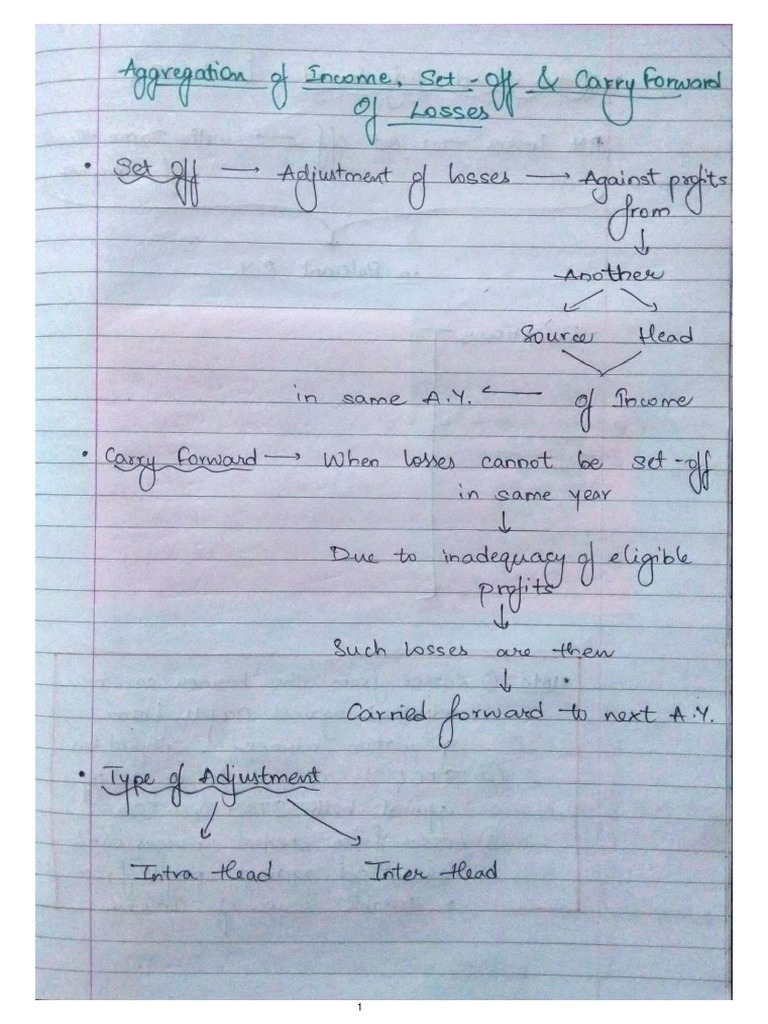 Aggregation of Income, Set-off & Carry Forward
Of Losses
• Set off → Adjustment of losses → Against profits
from
↓
Another
Source Head
in same A.Y. ← of Income
• Carry Forward → When losses cannot be set-off
in same year
↓
Due to inadequacy of eligible
profits
↓
Such losses are then
↓
Carried forward to next A.Y.
• Type of Adjustment
Intra Head Inter Head
1